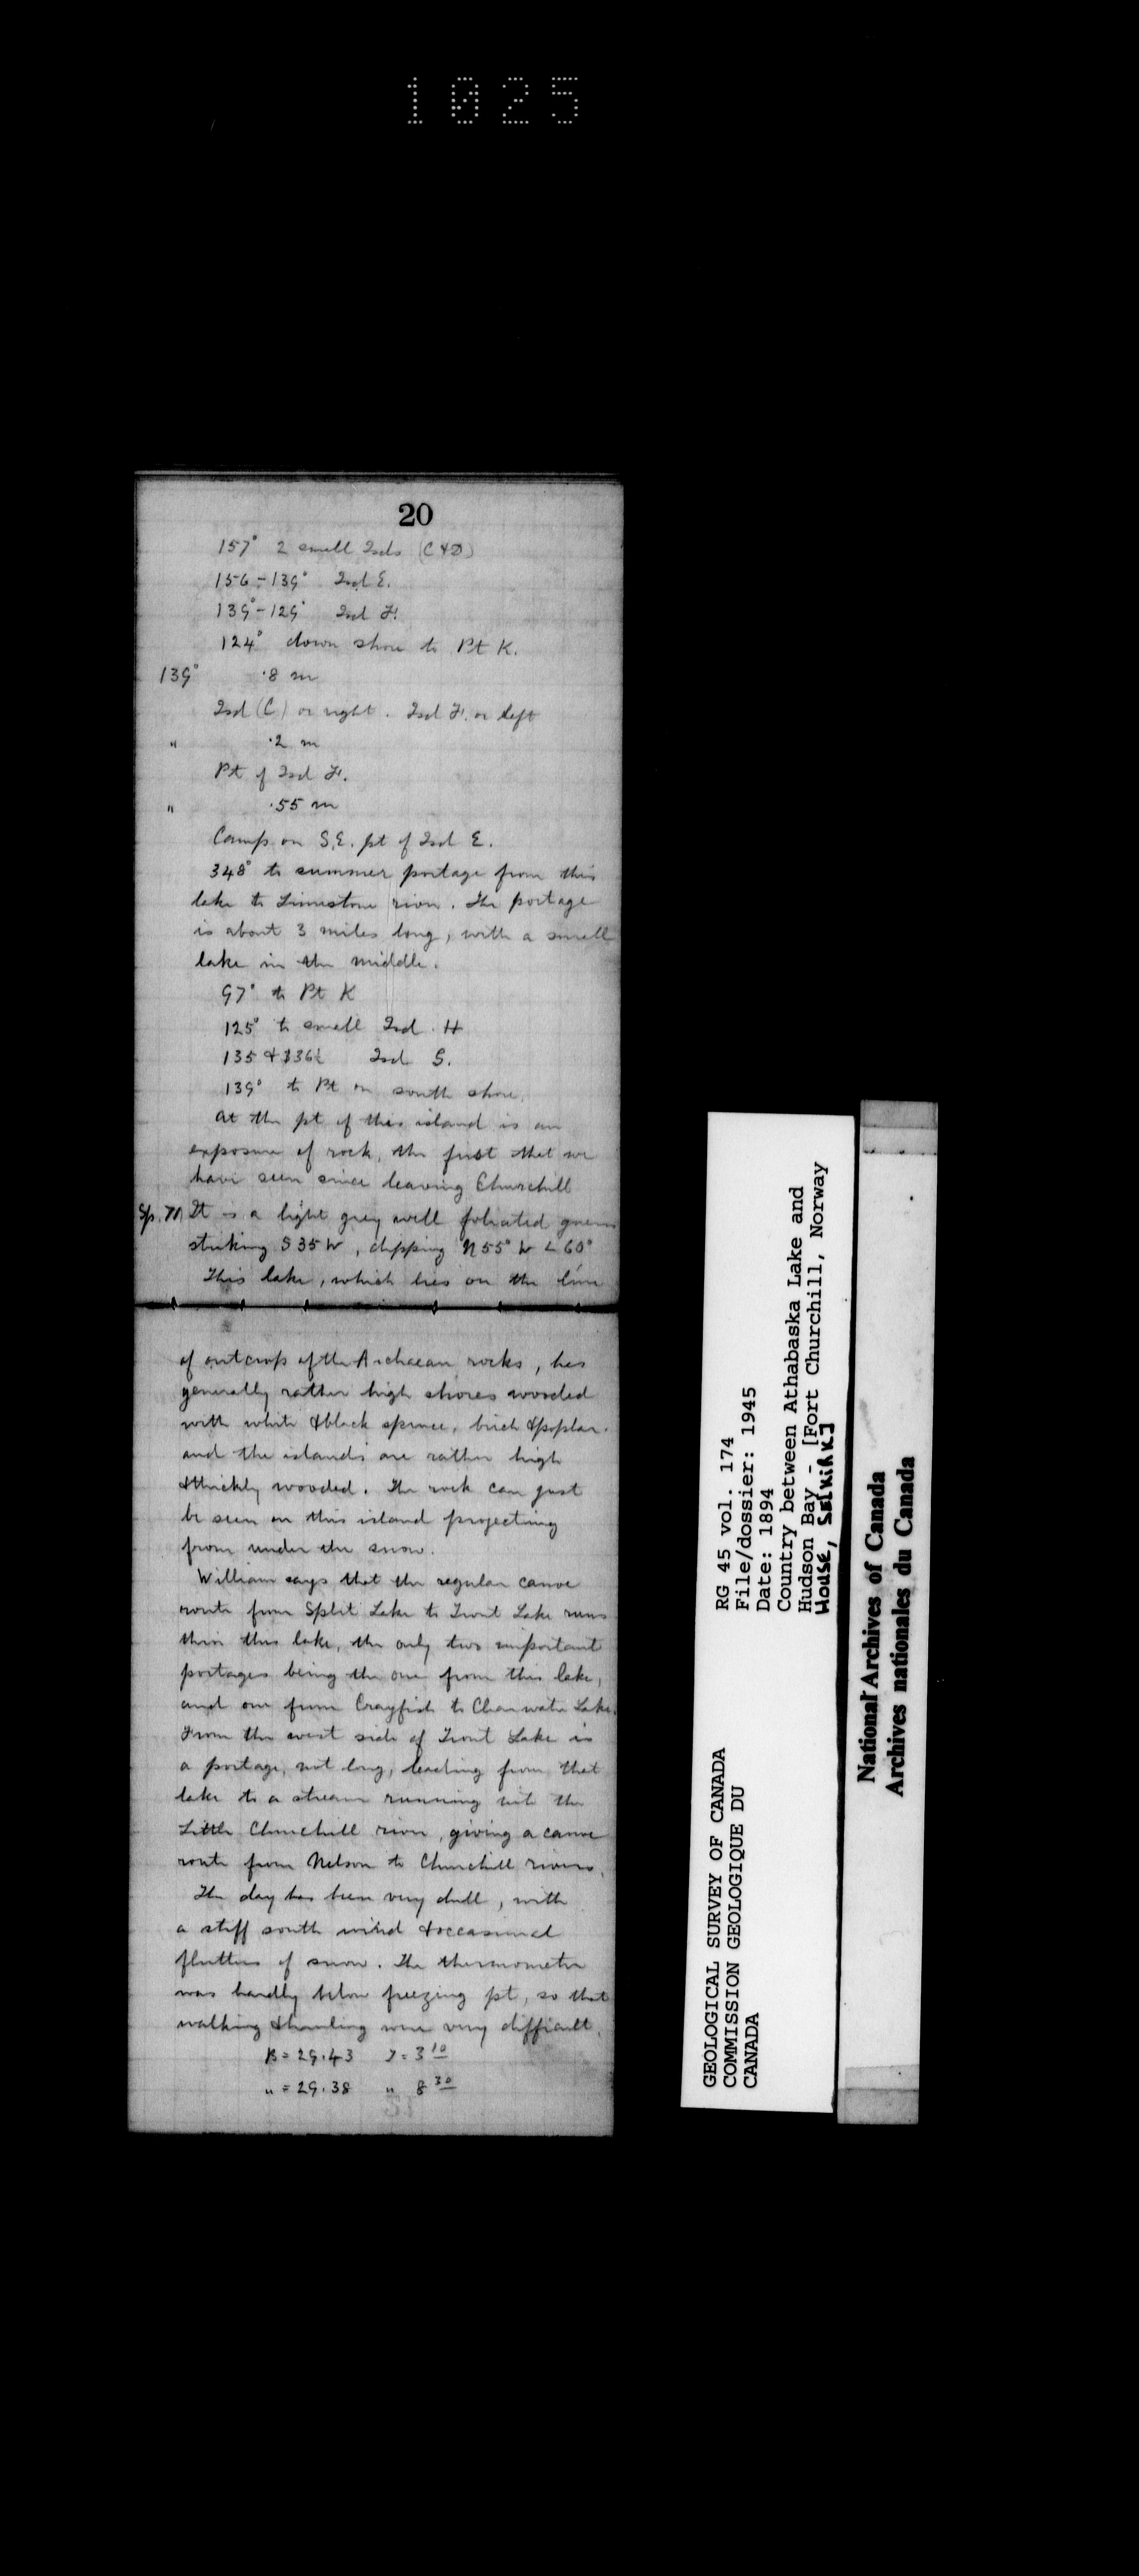 1025
20
157° 2 small Isds (C & D)
156-139° Isd E.
139°-129° Isd F.
124° down shore to Pt K.
139° .8 m
Isd (C) on right. Isd F. on left
" .2 m
Pt of Isd F.
" .55 m
Camp on S.E. pt of Isd E.
348° to summer portage from this
lake to Limestone river. The portage
is about 3 miles long, with a small
lake in the middle.
97° to Pt K
125° to small Isd. H
135 & 136½ Isd G.
139° to Pt on south shore.
At the pt of this island is an
exposure of rock, the first that we
have seen since leaving Churchill
Sp. It is a light grey well foliated gneiss
striking S 35 W, dipping N 55° W ∠ 60°
This lake, which lies on the line
of outcrop of the Archaean rocks, has
generally rather high shores wooded
with white & black spruce, birch & poplar.
and the islands are rather high
& thickly wooded. The rock can just
be seen on this island projecting
from under the snow.
William says that the regular canoe
route from Split Lake to Trout Lake runs
thro this lake, the only two important
portages being the one from this lake,
and one from Crayfish to Clearwater Lake.
From the west side of Trout Lake is
a portage, not long, leading from that
lake to a stream running into the
Little Churchill river, giving a canoe
route from Nelson to Churchill rivers.
The day has been very dull, with
a stiff south wind & occasional
flutters of snow. The thermometer
was hardly below freezing pt, so that
walking & hauling were very difficult.
B = 29.43 T = 3 10
" = 29.38 " 8 30
GEOLOGICAL SURVEY OF CANADA
COMMISSION GEOLOGIQUE DU
CANADA
RG 45 vol. 174
File/dossier: 1945
Date: 1894
Country between Athabaska Lake and
Hudson Bay - [Fort Churchill, Norway
House, Selkirk]
National Archives of Canada
Archives nationales du Canada